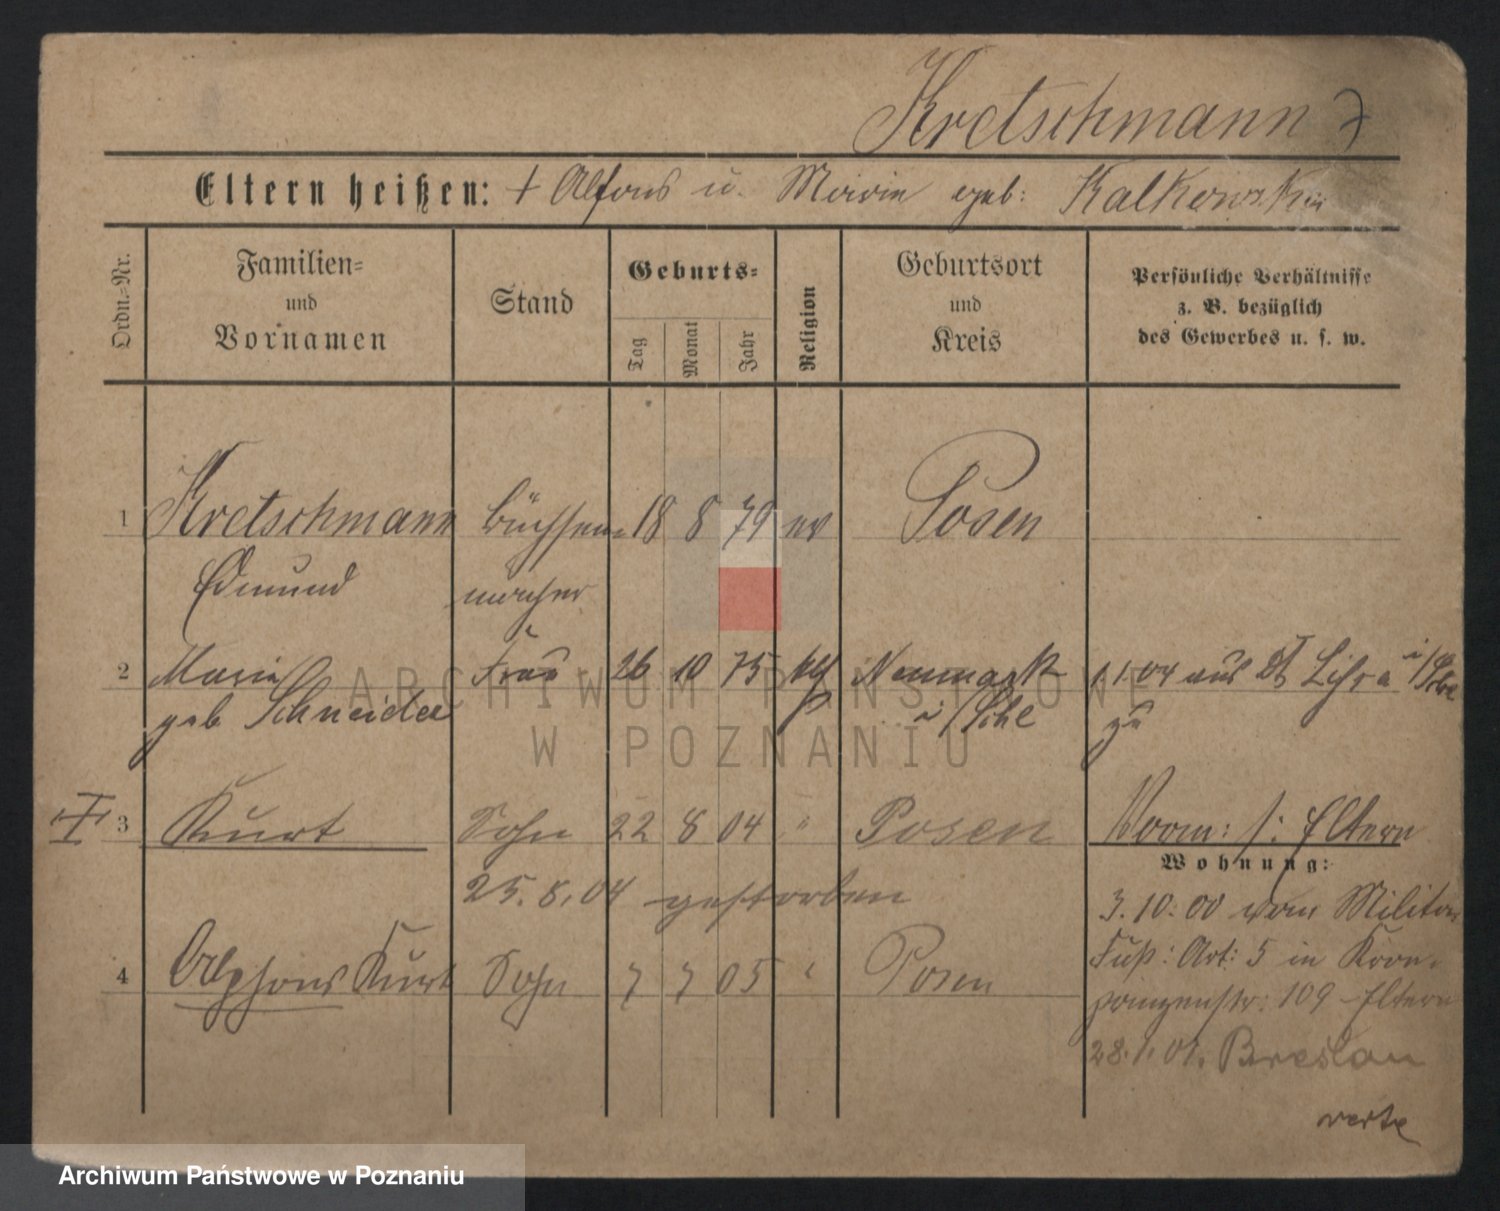 Kretschmann
Eltern heißen: + Alfons u. Marie geb: Kalkowska
Ordn.-Nr.
Familien-
und
Vornamen
Stand
Geburts-
Tag
Monat
Jahr
Religion
Geburtsort
und
Kreis
Persönliche Verhältnisse
z. B. bezüglich
des Gewerbes u. s. w.
1 Kretschmann Büchsen- 18 8 79 ev Posen
Edmund macher
2 Marie Frau 26 10 75 kth Neumarkt 1.1.04 aus Dt Lissa i/Schle
geb Schneider i/Schle zu
3 Kurt Sohn 22 8 04 " Posen Vorm: s: Eltern
Wohnung:
25.8.04 gestorben
3.10.00 vom Militär
4 Alphons Kurt Sohn 7 7 05 " Posen
Fuß: Art: 5 in Kron-
prinzenstr: 109 Eltern
28.1.01. Breslau
verte
ARCHIWUM PAŃSTWOWE
W POZNANIU
Archiwum Państwowe w Poznaniu